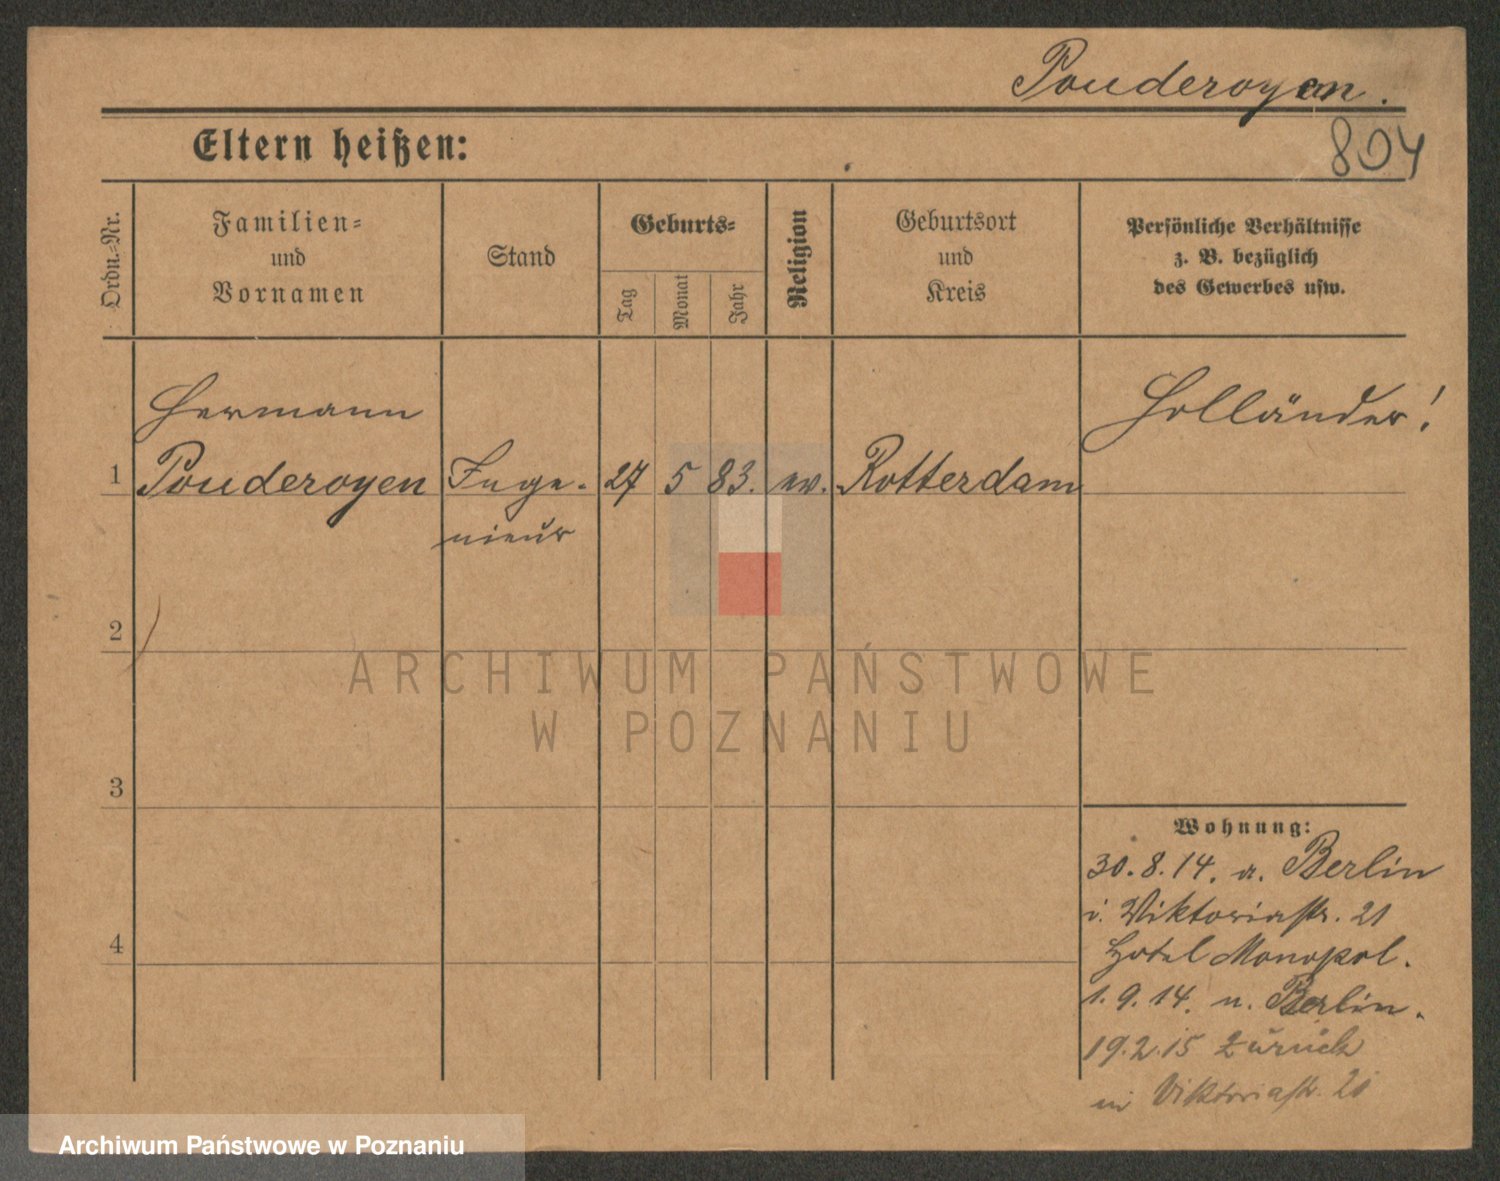 Pouderoyen.
804
Eltern heißen:
Ordn.-Nr.
Familien-
und
Vornamen
Stand
Geburts-
Tag
Monat
Jahr
Religion
Geburtsort
und
Kreis
Persönliche Verhältnisse
z. B. bezüglich
des Gewerbes usw.
Hermann
Holländer!
1 Pouderoyen Inge- 27 5 83. ev. Rotterdam
nieur
2
ARCHIWUM PAŃSTWOWE
W POZNANIU
3
Wohnung:
30.8.14. a. Berlin
i. Viktoriastr. 21
4
Hotel Monopol.
1.9.14. n. Berlin.
19.2.15 zurück
in Viktoriastr. 21
Archiwum Państwowe w Poznaniu